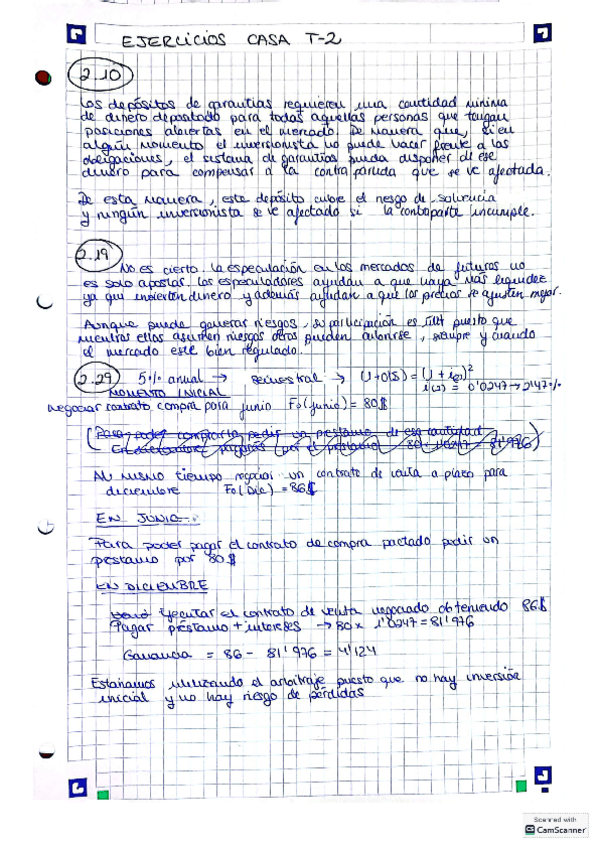 EJERCICIOS CASA T-2
2.10
Los depósitos de garantías requieren una cantidad mínima
de dinero depositado para todas aquellas personas que tengan
posiciones abiertas en el mercado. De manera que, si en
algún momento el inversionista no puede hacer frente a las
obligaciones, el sistema de garantías pueda disponer de ese
dinero para compensar a la contrapartida que se ve afectada.
De esta manera, este depósito cubre el riesgo de solvencia
y ningún inversionista se ve afectado si la contraparte incumple.
2.19
No es cierto. La especulación en los mercados de futuros no
es solo apostar. Los especuladores ayudan a que haya más liquidez
ya que invierten dinero y además ayudan a que los precios se ajusten mejor.
Aunque puede generar riesgos, su participación es útil puesto que
mientras ellos asumen riesgos otros pueden cubrirse, siempre y cuando
el mercado este bien regulado.
2.29 5% anual → semestral → (1+0'05) = (1+i(2))²
i(2) = 0'0247 → 2'47%
MOMENTO INICIAL
Negociar contrato compra para junio F₀(junio) = 80$
(Para poder comprarlo pedir un préstamo de esa cantidad
En diciembre pagarías por el préstamo 80·1'0247 = 81'976)
Al mismo tiempo negociar un contrato de venta a plazo para
diciembre F₀(Dic) = 86$
EN JUNIO:
Para poder pagar el contrato de compra pactado pedir un
préstamo por 80$
EN DICIEMBRE
Ejecutar el contrato de venta negociado obteniendo 86$
Pagar préstamo + intereses → 80 x 1'0247 = 81'976
Ganancia = 86 - 81'976 = 4'124
Estaríamos utilizando el arbitraje puesto que no hay inversión
inicial y no hay riesgo de pérdidas
Scanned with
CS CamScanner